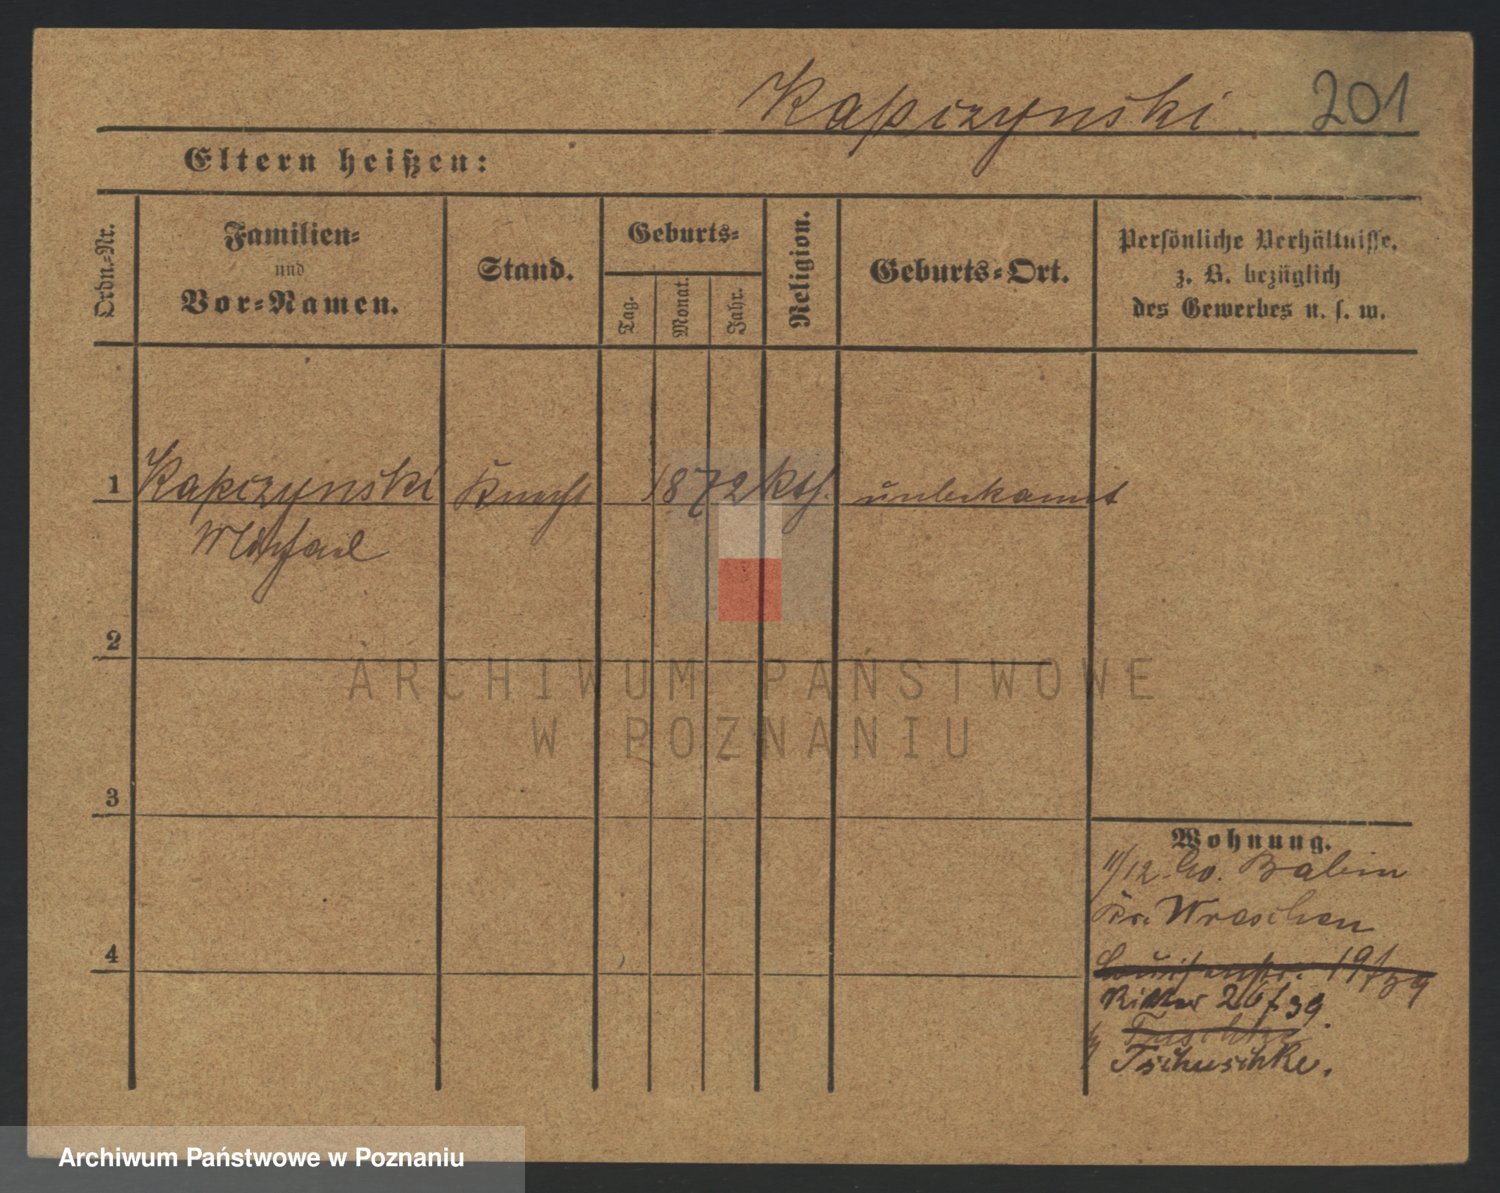 Kapczynski 201
Eltern heißen:
Ordn.-Nr.
Familien-
und
Vor-Namen.
Stand.
Geburts-
Tag.
Monat.
Jahr.
Religion.
Geburts-Ort.
Persönliche Verhältnisse,
z. B. bezüglich
des Gewerbes u. s. w.
1 Kapczynski Knecht 1872 kth. unbekannt
Michael
2
ARCHIWUM PAŃSTWOWE
W POZNANIU
3
4
Wohnung.
11/12. Go. Babin
Kr. Wreschen
19/39
Ritter 26/39.
Tschuschke.
Archiwum Państwowe w Poznaniu